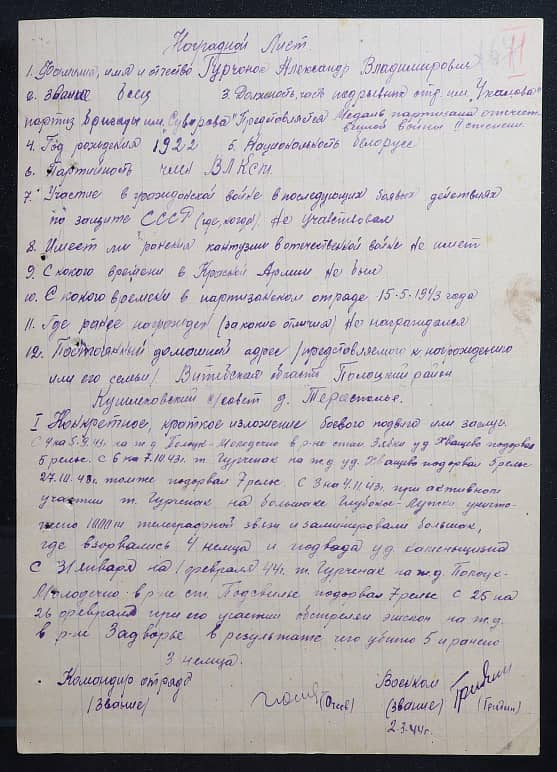 71
Наградной Лист.
1. Фамилия, имя и отчество Гурченок Александр Владимирович
2. Звание боец 3. Должность, часть подрывник отр. им. "Ухалова"
партиз. бригады им. "Суворова" Представляется Медаль партизана отечест
венной войны II степени.
4. Год рождения 1922 5. Национальность белорусс
6. Партийность член ВЛКСМ.
7. Участие в гражданской войне в последующих боевых действиях
по защите СССР (где, когда). Не участвовал
8. Имеет ли ранения кантузии в отечественной войне не имеет
9. С какого времени в Красной Армии не был
10. С какого времени в партизанском отряде 15-5-1943 года
11. Где ранее награжден (за какие отличия) Не награждался
12. Постоянный домашний адрес /представляемого к награждению
или его семьи/ Витебская область Полоцкий район
с/совет д.
I Конкретное, краткое изложение боевого подвига или заслуг.
С 4 на 5.9.43г. на ж.д. Полоцк-Молодечно в р-не стан. Зябки у д. Хващево подорвал
5 рельс. С 6 на 7.10.43г. т. Гурченак на ж.д. у д. Хващево подорвал 8 рельс
27.10.43г. там же подорвал 7 рельс. С 3 на 4.11.43г. при активном
участии т. Гурченак на большаке Глубокое-Лужки уничто-
жено 1000 м телеграфной связи и заминировали большак,
где взорвались 4 немца и подвода у д.
С 31 января на 1 февраля 44г. т. Гурченак на ж.д. Полоцк-
Молодечно в р-не ст. Подсвилье подорвал 7 рельс С 25 на
26 февраля при его участии обстрелян эшелон на ж.д.
в р-не Задворье в результате чего убито 5 и ранено
3 немца.
Командир отряда Военком
(звание) (звание) (Гридин)
2.3.44г.